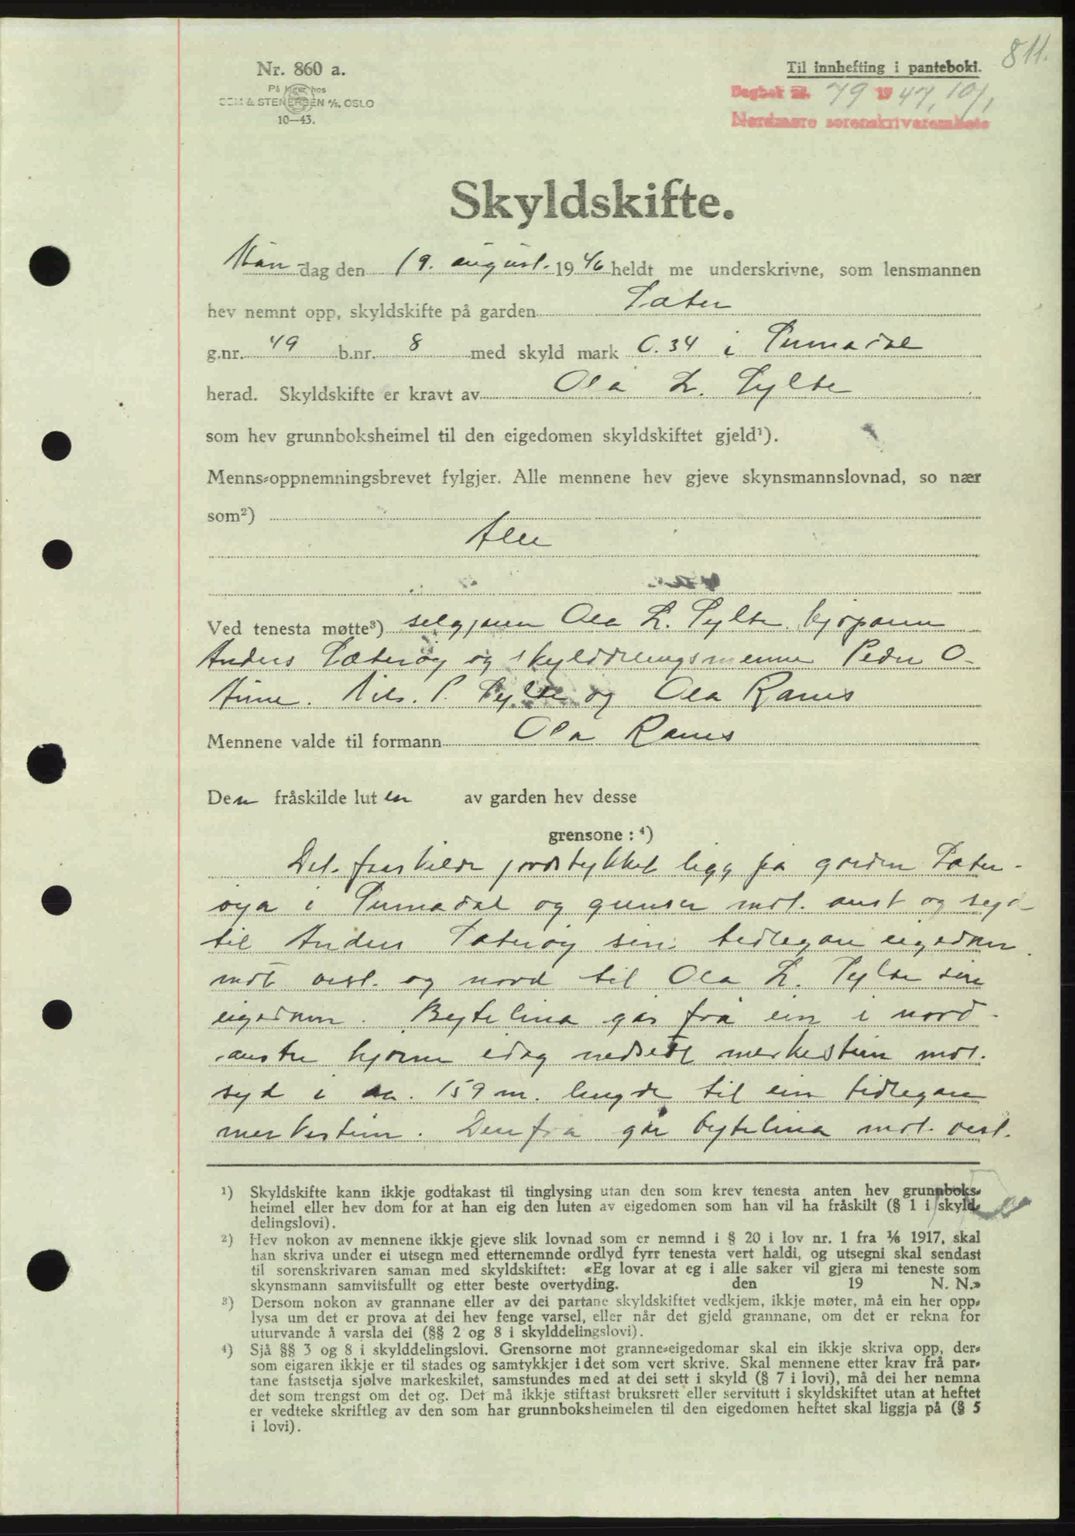 811.
Nr. 860 a.
Til innhefting i pantebok.
På lager hos
SEM & STENERSEN A/S, OSLO
10—43.
Dagbok nr. 79 1947, 10/1
Nordmøre sorenskrivarembete
Skyldskifte.
Mån-dag den 19. august. 1946 heldt me underskrivne, som lensmannen
hev nemnt opp, skyldskifte på garden Sæter
g.nr. 49 b.nr. 8 med skyld mark 0.34 i Surnadal
herad. Skyldskifte er kravt av Ola L. Sylte
som hev grunnboksheimel til den eigedomen skyldskiftet gjeld¹).
Menns-oppnemningsbrevet fylgjer. Alle mennene hev gjeve skynsmannslovnad, so nær
som²)
Alle
Ved tenesta møtte³) seljaren Ola L. Sylte kjøparen
Anders Sæterøy og skylddelingsmennene Peder O.
Nils. P. Sylte og Ola Ranes
Mennene valde til formann Ola Ranes
Den fråskilde luten av garden hev desse
grensone : ⁴)
Det fraskilde jordstykket ligg på garden Sæter-
øya i Surnadal og grenser mot. aust og syd-
til Anders Sæterøy sin tidlegare eigedom.
mot vest. og nord til Ola L. Sylte sin
eigedom. Bytelina går frå ein i nord-
austre hjørne idag nedsett merkestein mot.
syd i ca. 159 m. lengde til ein tidlegare
merkestein. Derifra går bytelina mot. vest.
¹) Skyldskifte kann ikkje godtakast til tinglysing utan den som krev tenesta anten hev grunnboks-
heimel eller hev dom for at han eig den luten av eigedomen som han vil ha fråskilt (§ 1 i skyld-
delingslovi).
²) Hev nokon av mennene ikkje gjeve slik lovnad som er nemnd i § 20 i lov nr. 1 fra ¹/₆ 1917, skal
han skriva under ei utsegn med etternemnde ordlyd fyrr tenesta vert haldi, og utsegni skal sendast
til sorenskrivaren saman med skyldskiftet: «Eg lovar at eg i alle saker vil gjera mi teneste som
skynsmann samvitsfullt og etter beste overtyding. den 19 N. N.»
³) Dersom nokon av grannane eller av dei partane skyldskiftet vedkjem, ikkje møter, må ein her opp-
lysa um det er prova at dei hev fenge varsel, eller når det gjeld grannane, om det er rekna for
uturvande å varsla dei (§§ 2 og 8 i skylddelingslovi).
⁴) Sjå §§ 3 og 8 i skylddelingslovi. Grensorne mot granne-eigedomar skal ein ikkje skriva opp, der-
som eigaren ikkje er til stades og samtykkjer i det som vert skrive. Skal mennene etter krav frå par-
tane fastsetja sjølve markeskilet, samstundes med at dei sett i skyld (§ 7 i lovi), må dei her nemna
det som trengst om det og. Det må ikkje stiftast bruksrett eller servitutt i skyldskiftet utan at heftet
er vedteke skriftleg av den som har grunnboksheimelen til den eigedomen heftet skal liggja på (§ 5
i lovi).